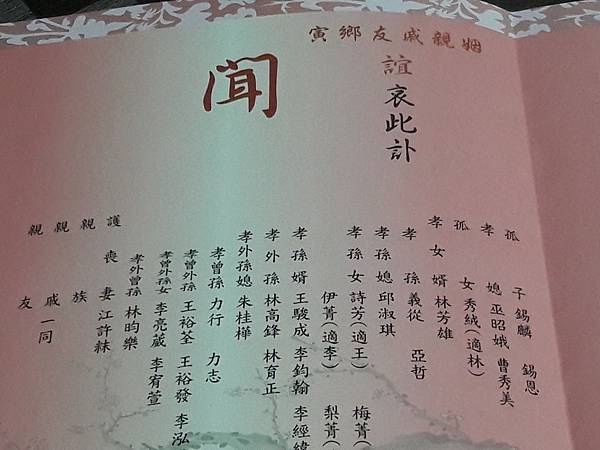 姻親戚友鄉寅
誼哀此訃
聞
孤子 錫麟 錫恩
孝媳 巫昭娥 曹秀美
孤女 秀絨(適林)
孝女婿 林芳雄
孝孫 義從 亞哲
孝孫媳 邱淑琪
孝孫女 詩芳(適王) 梅菁(
伊菁(適李) 梨菁(
孝孫婿 王駿成 李鈞翰 李經緯
孝外孫 林高鋒 林育正
孝外孫媳 朱桂樺
孝曾孫 力行 力志
孝曾外孫 王裕荃 王裕發 李泓
孝曾外孫女 李亮葳 李宥萱
孝外曾孫 林昀樂
護喪妻 江許
親族
親戚一同
親友